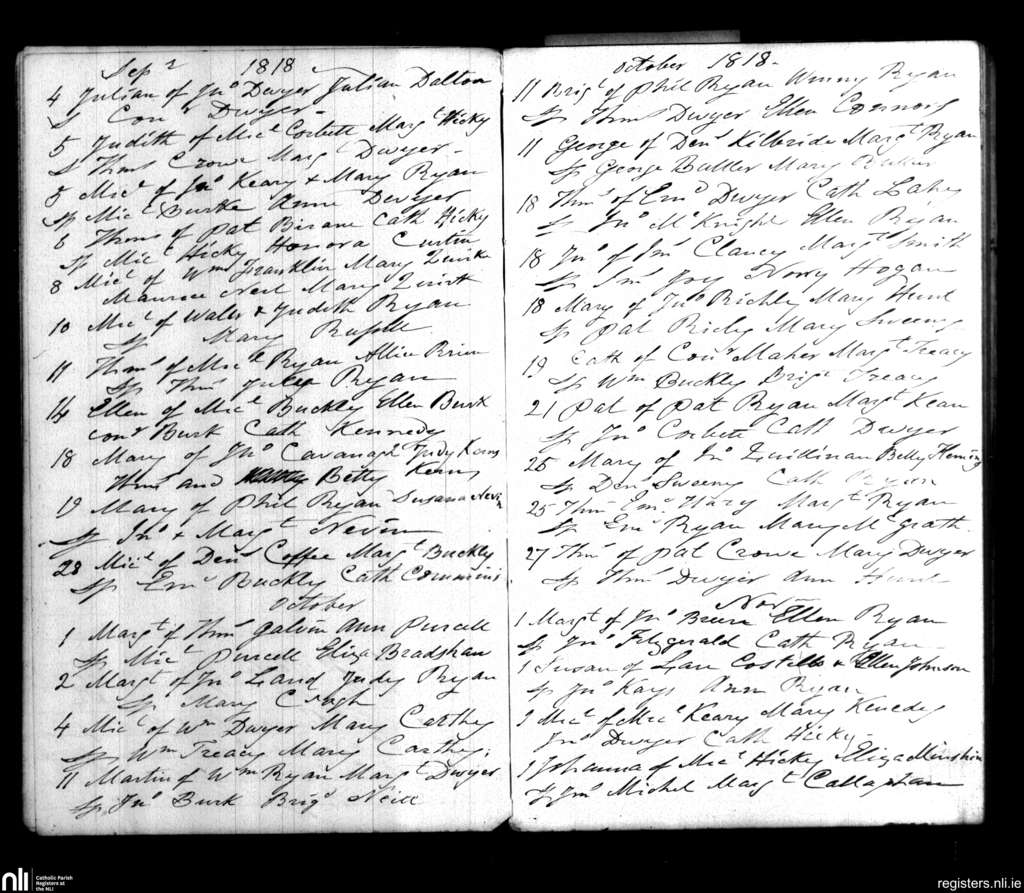 Sepr 1818
4 Julian of Jno Dwyer Julian Dalton
Sp Conr Dwyer
5 Judith of Micl Corbett Margt Hicky
Sp Thms Crowe Margt Dwyer
5 Micl of Jno Keary & Mary Ryan
Sp Micl Burke Ann Dwyer
6 Thoms of Pat Bisane Cath Hicky
Sp Micl Hicky Honora Curtin
8 Micl of Wm Franklin Mary Quirke
Maurice Neil Mary Quirk
10 Micl of Water & Judith Ryan
Sp Mary
11 Thms of Micl Ryan Allice Brien
Sp Thms Ryan
14 Ellen of Micl Buckly Ellen Burk
Conr Burk Cath Kennedy
18 Mary of Jno Cavanagh Judy Kerns
Thms and Betty Kerns
19 Mary of Phil Ryan Susana Nevin
Sp Jno & Margt Nevin
28 Micl of Denl Coffee Margt Buckly
Sp Emr Buckly Cath Commins
October
1 Margt of Thms Galvin Ann Purcell
Sp Micl Purcell Eliza Bradshaw
2 Margt of Jno Land Judy Ryan
Sp Mary
4 Micl of Wm Dwyer Mary Carthy
Sp Wm Treacy Mary Carthy
11 Martin of Wm Ryan Margt Dwyer
Sp Jno Burk Brigt Neill
October 1818-
11 Brigt of Phil Ryan Winny Ryan
Sp Thms Dwyer Ellen Connors
11 George of Denl Kilbride Margt Ryan
Sp George Butler Mary
18 Thms of Emr Dwyer Cath Lahy
Sp Jno McKnight Ellen Ryan
18 Jno of Jms Clancy Margt Smith
Sp Jms Joy Norry Hogan
18 Mary of Jno Richly Mary Hunt
Sp Pat Mary Sweeny
19 Cath of Conr Maher Margt Treacy
Sp Wm Buckly Brigt Treacy
21 Pat of Pat Ryan Margt Kean
Sp Jno Corbett Cath Dwyer
25 Mary of Jno Quillinan Betty Heming
Sp Denl Sweeny Cath Ryan
25 Thms Emr Hary Margt Ryan
Sp Emr Ryan Mary McGrath
27 Thms of Pat Crowe Mary Dwyer
Sp Thms Dwyer Ann Hunt
Novr
1 Margt of Jno Ellen Ryan
Sp Jno Fitzgerald Cath Ryan
1 Susan of Lau Costello & Ellen Johnson
Sp Jno Kays Ann Ryan
1 Micl of Micl Keary Mary Kenedy
Jno Dwyer Cath Hicky
1 Johanna of Micl Hickey Eliza Minshion
Sp Jms Michel Margt Callaghan
nli
Catholic Parish
Registers at
the NLI
registers.nli.ie